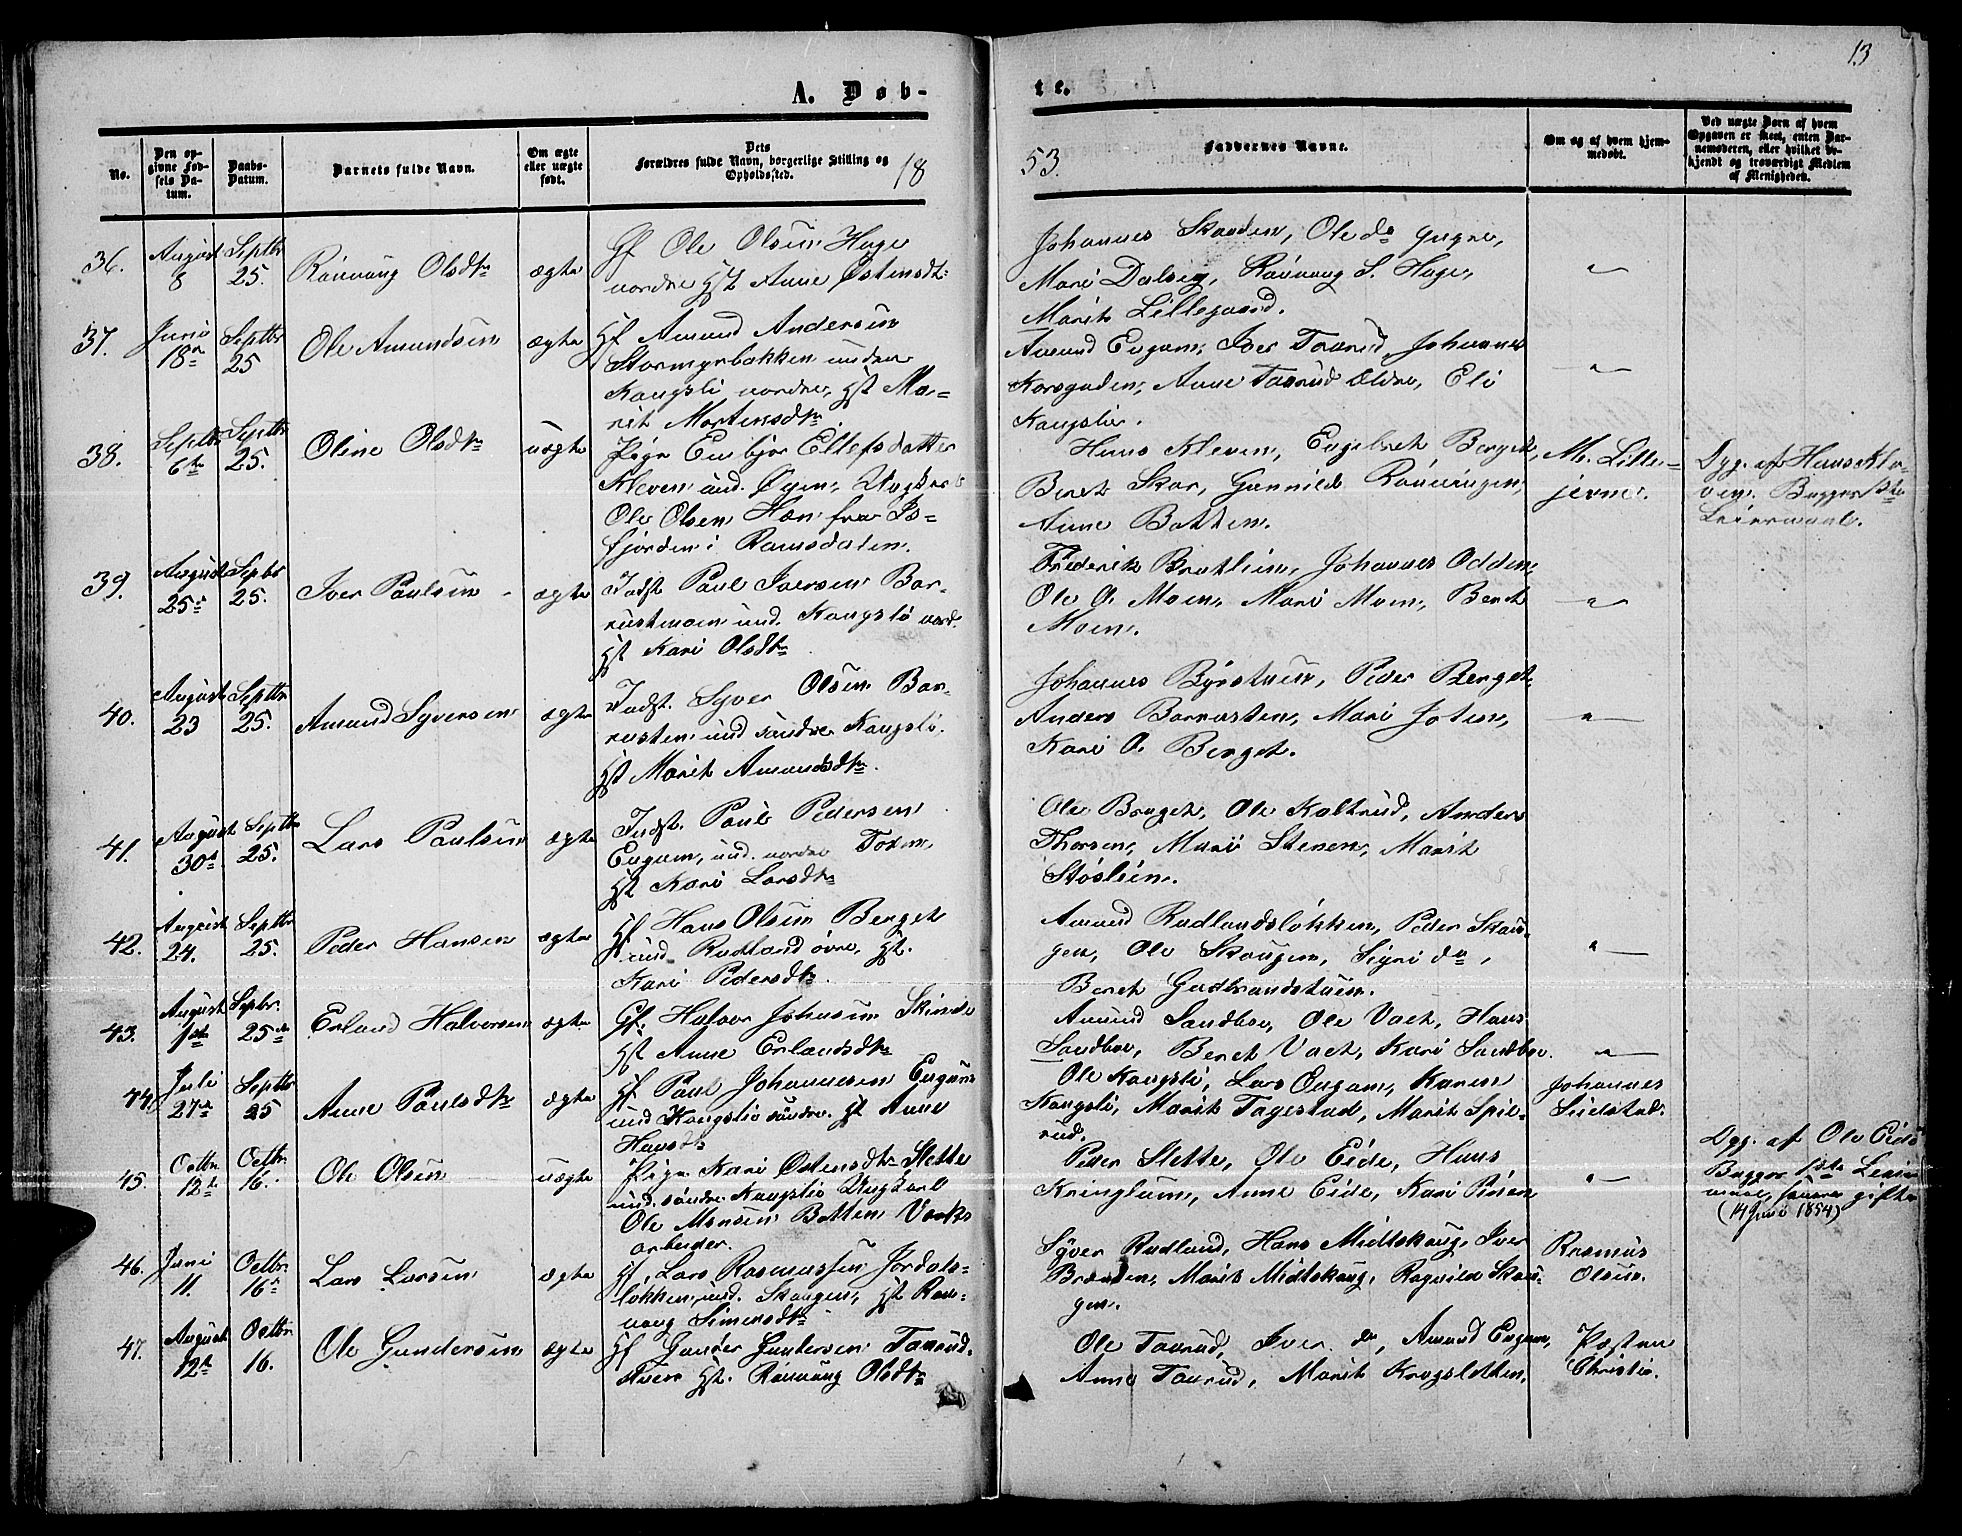 13
A. Døb-
te.
No.
Den op-
givne Fød-
sels Da-
tum.
Daabs-
Datum.
Barnets fulde Navn.
Om ægte
eller uægte
født.
Dets
Forældres fulde Navn, borgerlige Stilling og
Opholdssted.
18
53.
Faddernes Navne.
Om og af hvem hjem-
medøbt.
Ved uægte Børn af hvem
Opgaven er skeet, enten Bar-
nemoderen, eller hvilket be-
kjendt og troværdigt Medlem
af Menigheden.
36.
August
8
Septbr
25.
Rønnaug Olsdtr
ægte
Gf Ole Olsen Hage
nordre Hst Anne Østensdt.
Johannes Skouden, Ole do
Mari Dalseg, Rønnaug S. Hage,
Marit Lillegaard.
37.
Juni
18n
Septbr
25
Ole Amundsen
ægte
Hf Amund Andersen
Stormyrbakken under
Kongsli nordre, Hst Ma-
rit Mortensdtr.
Amund Engum, Iver Taarud, Johannes
Korsgaden, Anne Taarud Ældre, Eli
Kongslie.
38.
Septbr
6te
Septbr
25.
Oline Olsdtr
uægte
Pige Enbjør Ellefsdatter
Kleven und. Øyen, Ungkarl
Ole Olsen Hæn fra Is-
fjorden i Ramsdalen.
Hans Kleven, Engebret Berget,
Beret Skar, Gunnild Rønningen,
Anne Botten.
M. Lille-
jevne.
Opg. af Hans Kle-
ven. Begges 1ste
Leiermaal.
39.
August
25.
Septbr
25.
Iver Paulsen
ægte
Indst Paul Iversen Bar-
rustmoen und. Kongsli nord.
Hst Kari Olsdtr
Frederik Bratlien, Johannes Odden,
Ole O. Moen, Mari Moen, Beret
Moen.
40.
August
23
Septbr
25.
Amund Syversen
ægte
Indst. Syver Olsen Bar-
rusten und søndre Kongsli.
Hst Marit Amundsdtr.
Johannes Byrstuen, Peder Berget,
Anders Barrusten, Mari Joten,
Kari O. Berget.
41.
August
30t
Septbr
25.
Lars Paulsen
ægte
Indst. Paul Pedersen
Engum, und. nordre
Hst Kari Larsdtr
Ole Berget, Ole Kaltrud, Anders
Thorsen, Mari Stenen, Marit
Støslien.
42.
August
24.
Septbr
25.
Peder Hansen
ægte
Hf Hans Olsen Berget
und. Rudland øvre, Hst.
Kari Pedersdtr.
Amund Rudlandsløkken, Peder Skau-
gen, Ole Skougen, Sigri do,
Beret Gudbrandstuen.
43.
August
1ste
Septbr.
25de
Erland Halvorsen
ægte
Gf. Halvor Johnsen Skinde
Hst Anne Erlandsdtr
Amund Sandboe, Ole Vaet, Hans
Sandboe, Beret Vaet, Kari Sandboe.
44.
Juli
27de
Septbr
25
Anne Paulsdtr
ægte
Hf Paul Johannesen Engum
und Kongslie søndre. Hst Anne
Hansdtr
Ole Kongsli, Lars Engum, Karen
Kongsli, Marit Tagestad, Marit Spil-
rud.
Johannes
45.
Octbr.
12t
Octbr
16.
Ole Olsen
uægte
Pige Kari Østensdtr Slette
und. søndre Kongslie Ungkarl
Ole Monsen Botten Værks
arbeider.
Peder Slette, Ole Eide, Hans
Kringlum, Anne Eide, Kari
Opg. af Ole Eide
Begges 1ste Leier
maal, senere gifte
(14 Juni 1854)
46.
Juni
11.
Octbr
16n
Lars Larsen
ægte
Hf. Lars Rasmussen Jordals-
løkken, und. Skougen, Hst Røn-
naug Simensdtr
Syver Rudland, Hans Midtskaug, Iver
Brænden, Marit Midtskaug, Ragnild Skou-
gen.
Rasmus
Olsen.
47.
August
12t
Octbr
16.
Ole Gundersen
ægte
Hf Gunder Gundersen Taarud.
Hst. Rønnaug Olsdtr
Ole Taarud, Iver do, Amund Engum,
Anne Taarud, Marit Krogsletten.
Pastor
Christie.